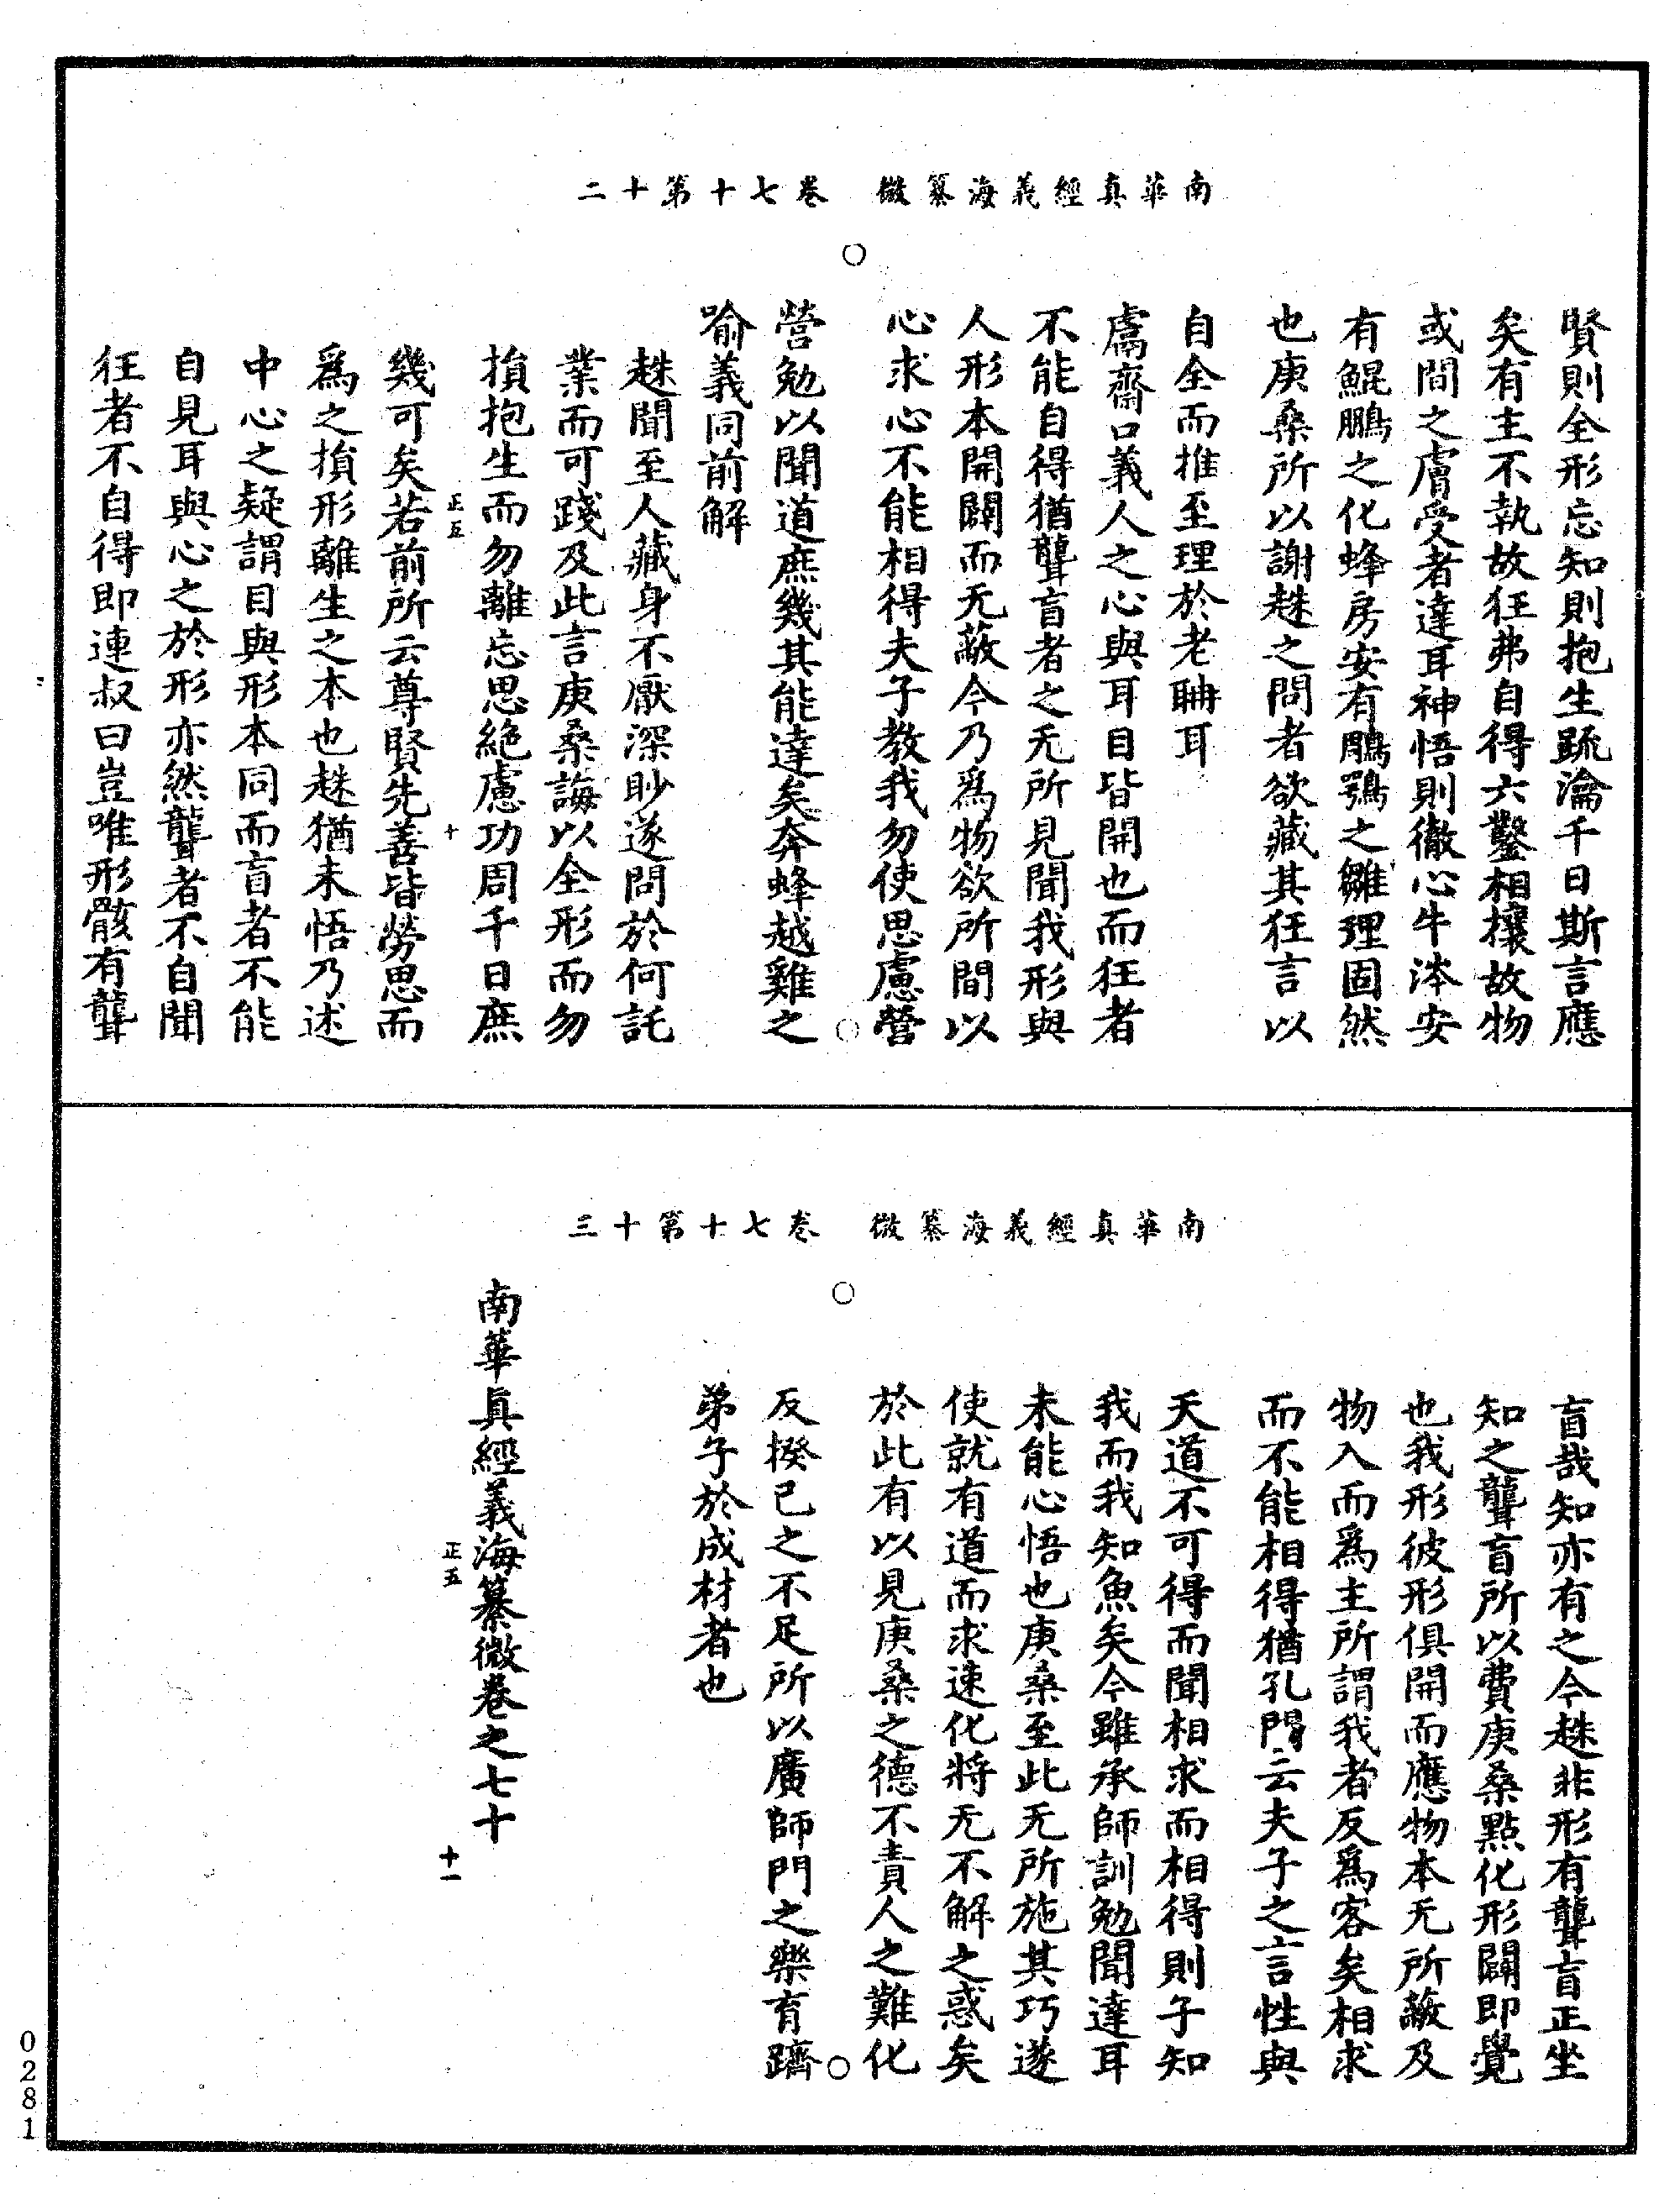 南華真經義海纂微　卷七十第十二
賢則全形忘知則抱生䟽瀹千日斯言應
矣有主不執故狂弗自得六鑿相攘故物
或間之膚受者達耳神悟則徹心牛涔安
有鯤鵬之化蜂房安有鵰鶚之雛理固然
也庚桑所以謝趎之問者欲藏其狂言以
自全而推至理於老聃耳
鬳齋口義人之心與耳目皆開也而狂者
不能自得猶聾盲者之无所見聞我形與
人形本開闢而无蔽今乃爲物欲所間以
心求心不能相得夫子教我勿使思慮營
營勉以聞道庶幾其能達矣奔蜂越雞之
喻義同前解
趎聞至人藏身不厭深眇遂問於何託
業而可踐及此言庚桑誨以全形而勿
損抱生而勿離忘思絕慮功周千日庶
正五　十
幾可矣若前所云尊賢先善皆勞思而
爲之損形離生之本也趎猶未悟乃述
中心之疑謂目與形本同而盲者不能
自見耳與心之於形亦然聾者不自聞
狂者不自得即連叔曰豈唯形骸有聾
南華真經義海纂微　卷七十第十三
盲哉知亦有之今趎非形有聾盲正坐
知之聾盲所以費庚桑點化形闢即覺
也我形彼形俱開而應物本无所蔽及
物入而爲主所謂我者反爲客矣相求
而不能相得猶孔門云夫子之言性與
天道不可得而聞相求而相得則子知
我而我知魚矣今雖承師訓勉聞達耳
未能心悟也庚桑至此无所施其巧遂
使就有道而求速化將无不解之惑矣
於此有以見庚桑之德不責人之難化
反揆己之不足所以廣師門之樂育躋
弟子於成材者也
南華真經義海纂微卷之七十
正五　十一
0281